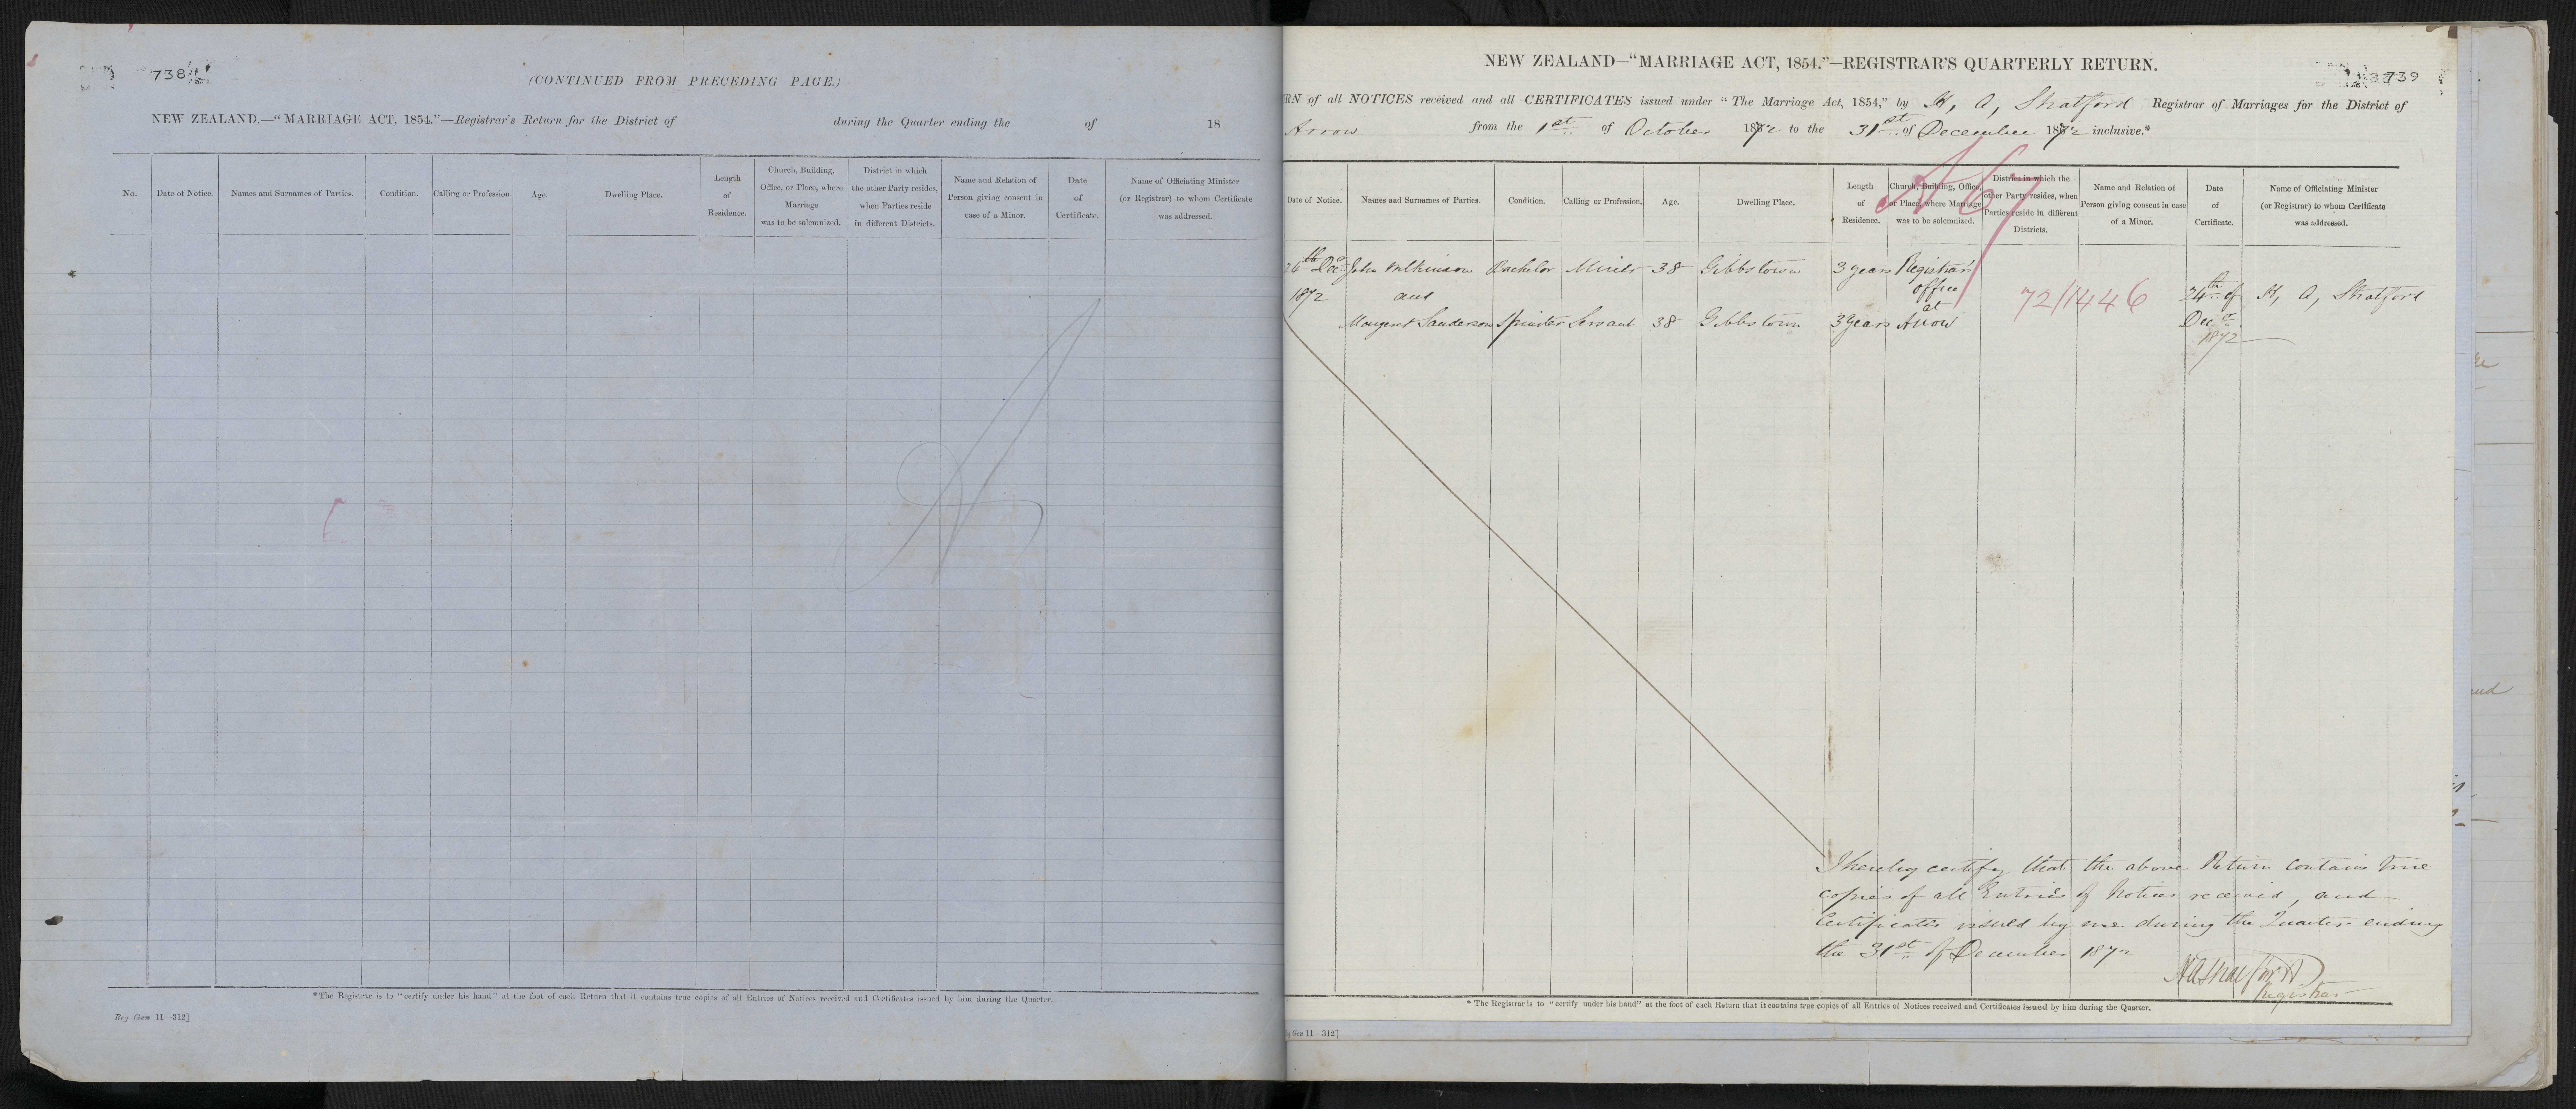 738
(CONTINUED FROM PRECEDING PAGE.)
NEW ZEALAND.—“MARRIAGE ACT, 1854.”—Registrar's Return for the District of during the Quarter ending the of 18
No. Date of Notice. Names and Surnames of Parties. Condition. Calling or Profession. Age. Dwelling Place. Length of Residence. Church, Building, Office, or Place, where Marriage was to be solemnized. District in which the other Party resides, when Parties reside in different Districts. Name and Relation of Person giving consent in case of a Minor. Date of Certificate. Name of Officiating Minister (or Registrar) to whom Certificate was addressed.
*The Registrar is to “certify under his hand” at the foot of each Return that it contains true copies of all Entries of Notices received and Certificates issued by him during the Quarter.
Reg Gen 11—312]
739
NEW ZEALAND—“MARRIAGE ACT, 1854.”—REGISTRAR'S QUARTERLY RETURN.
RN of all NOTICES received and all CERTIFICATES issued under “The Marriage Act, 1854,” by H, A, Stratford Registrar of Marriages for the District of
Arrow from the 1st of October 1872 to the 31st of December 1872 inclusive.*
A67
Date of Notice. Names and Surnames of Parties. Condition. Calling or Profession. Age. Dwelling Place. Length of Residence. Church, Building, Office, or Place, where Marriage was to be solemnized. District in which the other Party resides, when Parties reside in different Districts. Name and Relation of Person giving consent in case of a Minor. Date of Certificate. Name of Officiating Minister (or Registrar) to whom Certificate was addressed.
24th Decr John Wilkinson Bachelor Miner 38 Gibbstown 3 years Registrar's
1872 and office at 72/1446 24th of H, A, Stratford
Margaret Sanderson Spinster Servant 38 Gibbstown 3 years Arrow Decr
1872
I hereby certify that the above Return contains true
copies of all Entries of Notices received, and
Certificates issued by me during the Quarter ending
the 31st of December 1872
HAStratford
Registrar
*The Registrar is to “certify under his hand” at the foot of each Return that it contains true copies of all Entries of Notices received and Certificates issued by him during the Quarter.
g Gen 11—312]